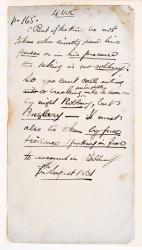 p. 165.
But if the thing be not
taken when directly from his
person or in his presence
the taking is not robbery.
So you can't call entering
or breaking into a house
by night Robbery, but
Burglary — It must
also be taken by
violence & putting in fear
to
August 1861